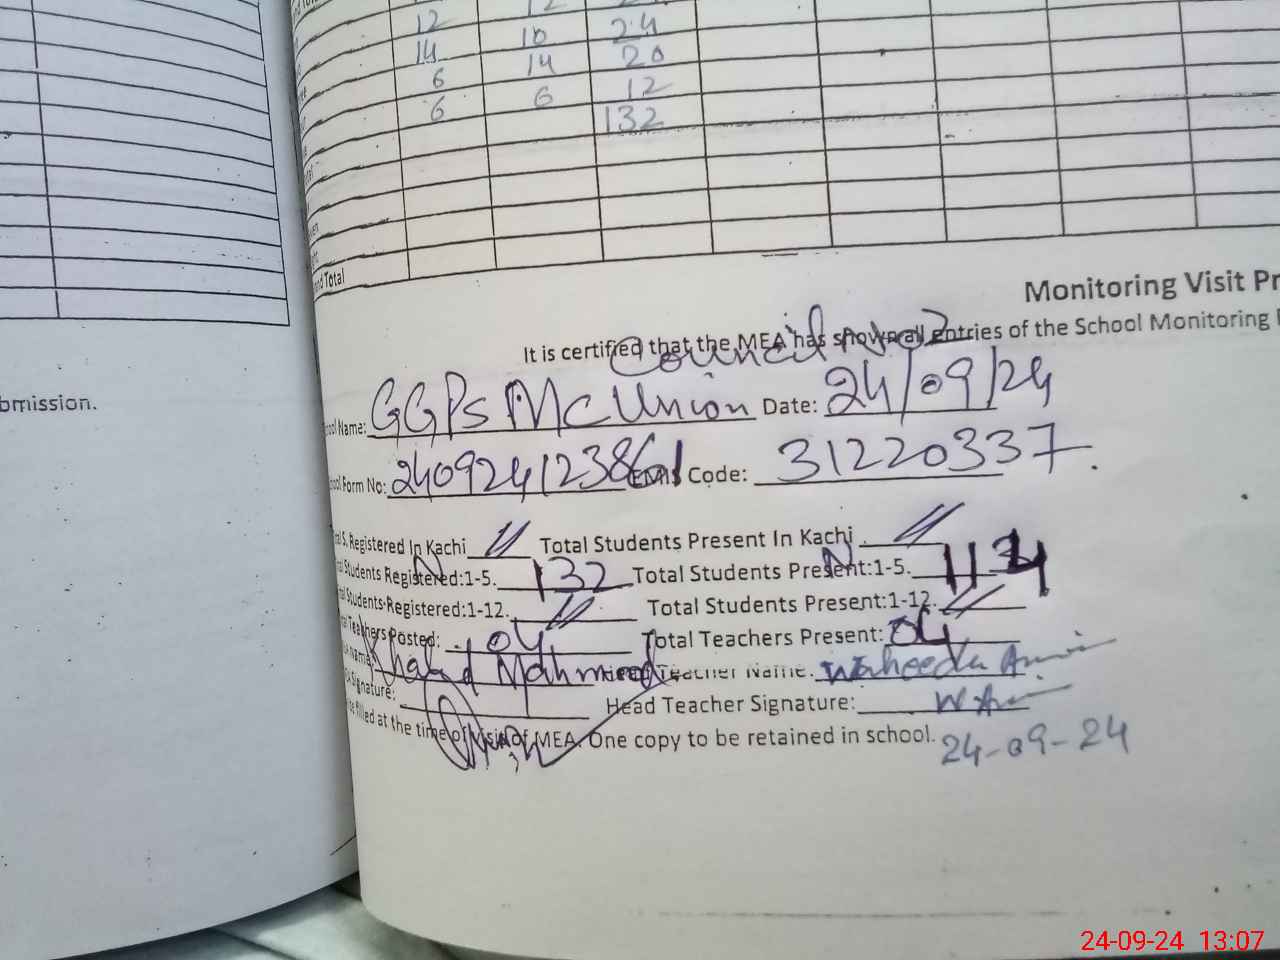 12 12
14 10 24
6 14 20
6 6 12
132
and Total
Monitoring Visit Pr
It is certified that the MEA has shown all entries of the School Monitoring
Council No 2
ool Name: GGPS MC Union Date: 24/09/24
ool Form No: 24092412386 EMIS Code: 31220337
al S. Registered In Kachi Total Students Present In Kachi
al Students Registered:1-5. 132 Total Students Present:1-5. 114
Students Registered:1-12. Total Students Present:1-12.
Teachers Posted: 04 Total Teachers Present: 04
Name: Khalid Mahmood Teacher Name: Waheeda
Signature: Head Teacher Signature:
be filled at the time of visit of MEA. One copy to be retained in school.
24-09-24
bmission.
24-09-24 13:07